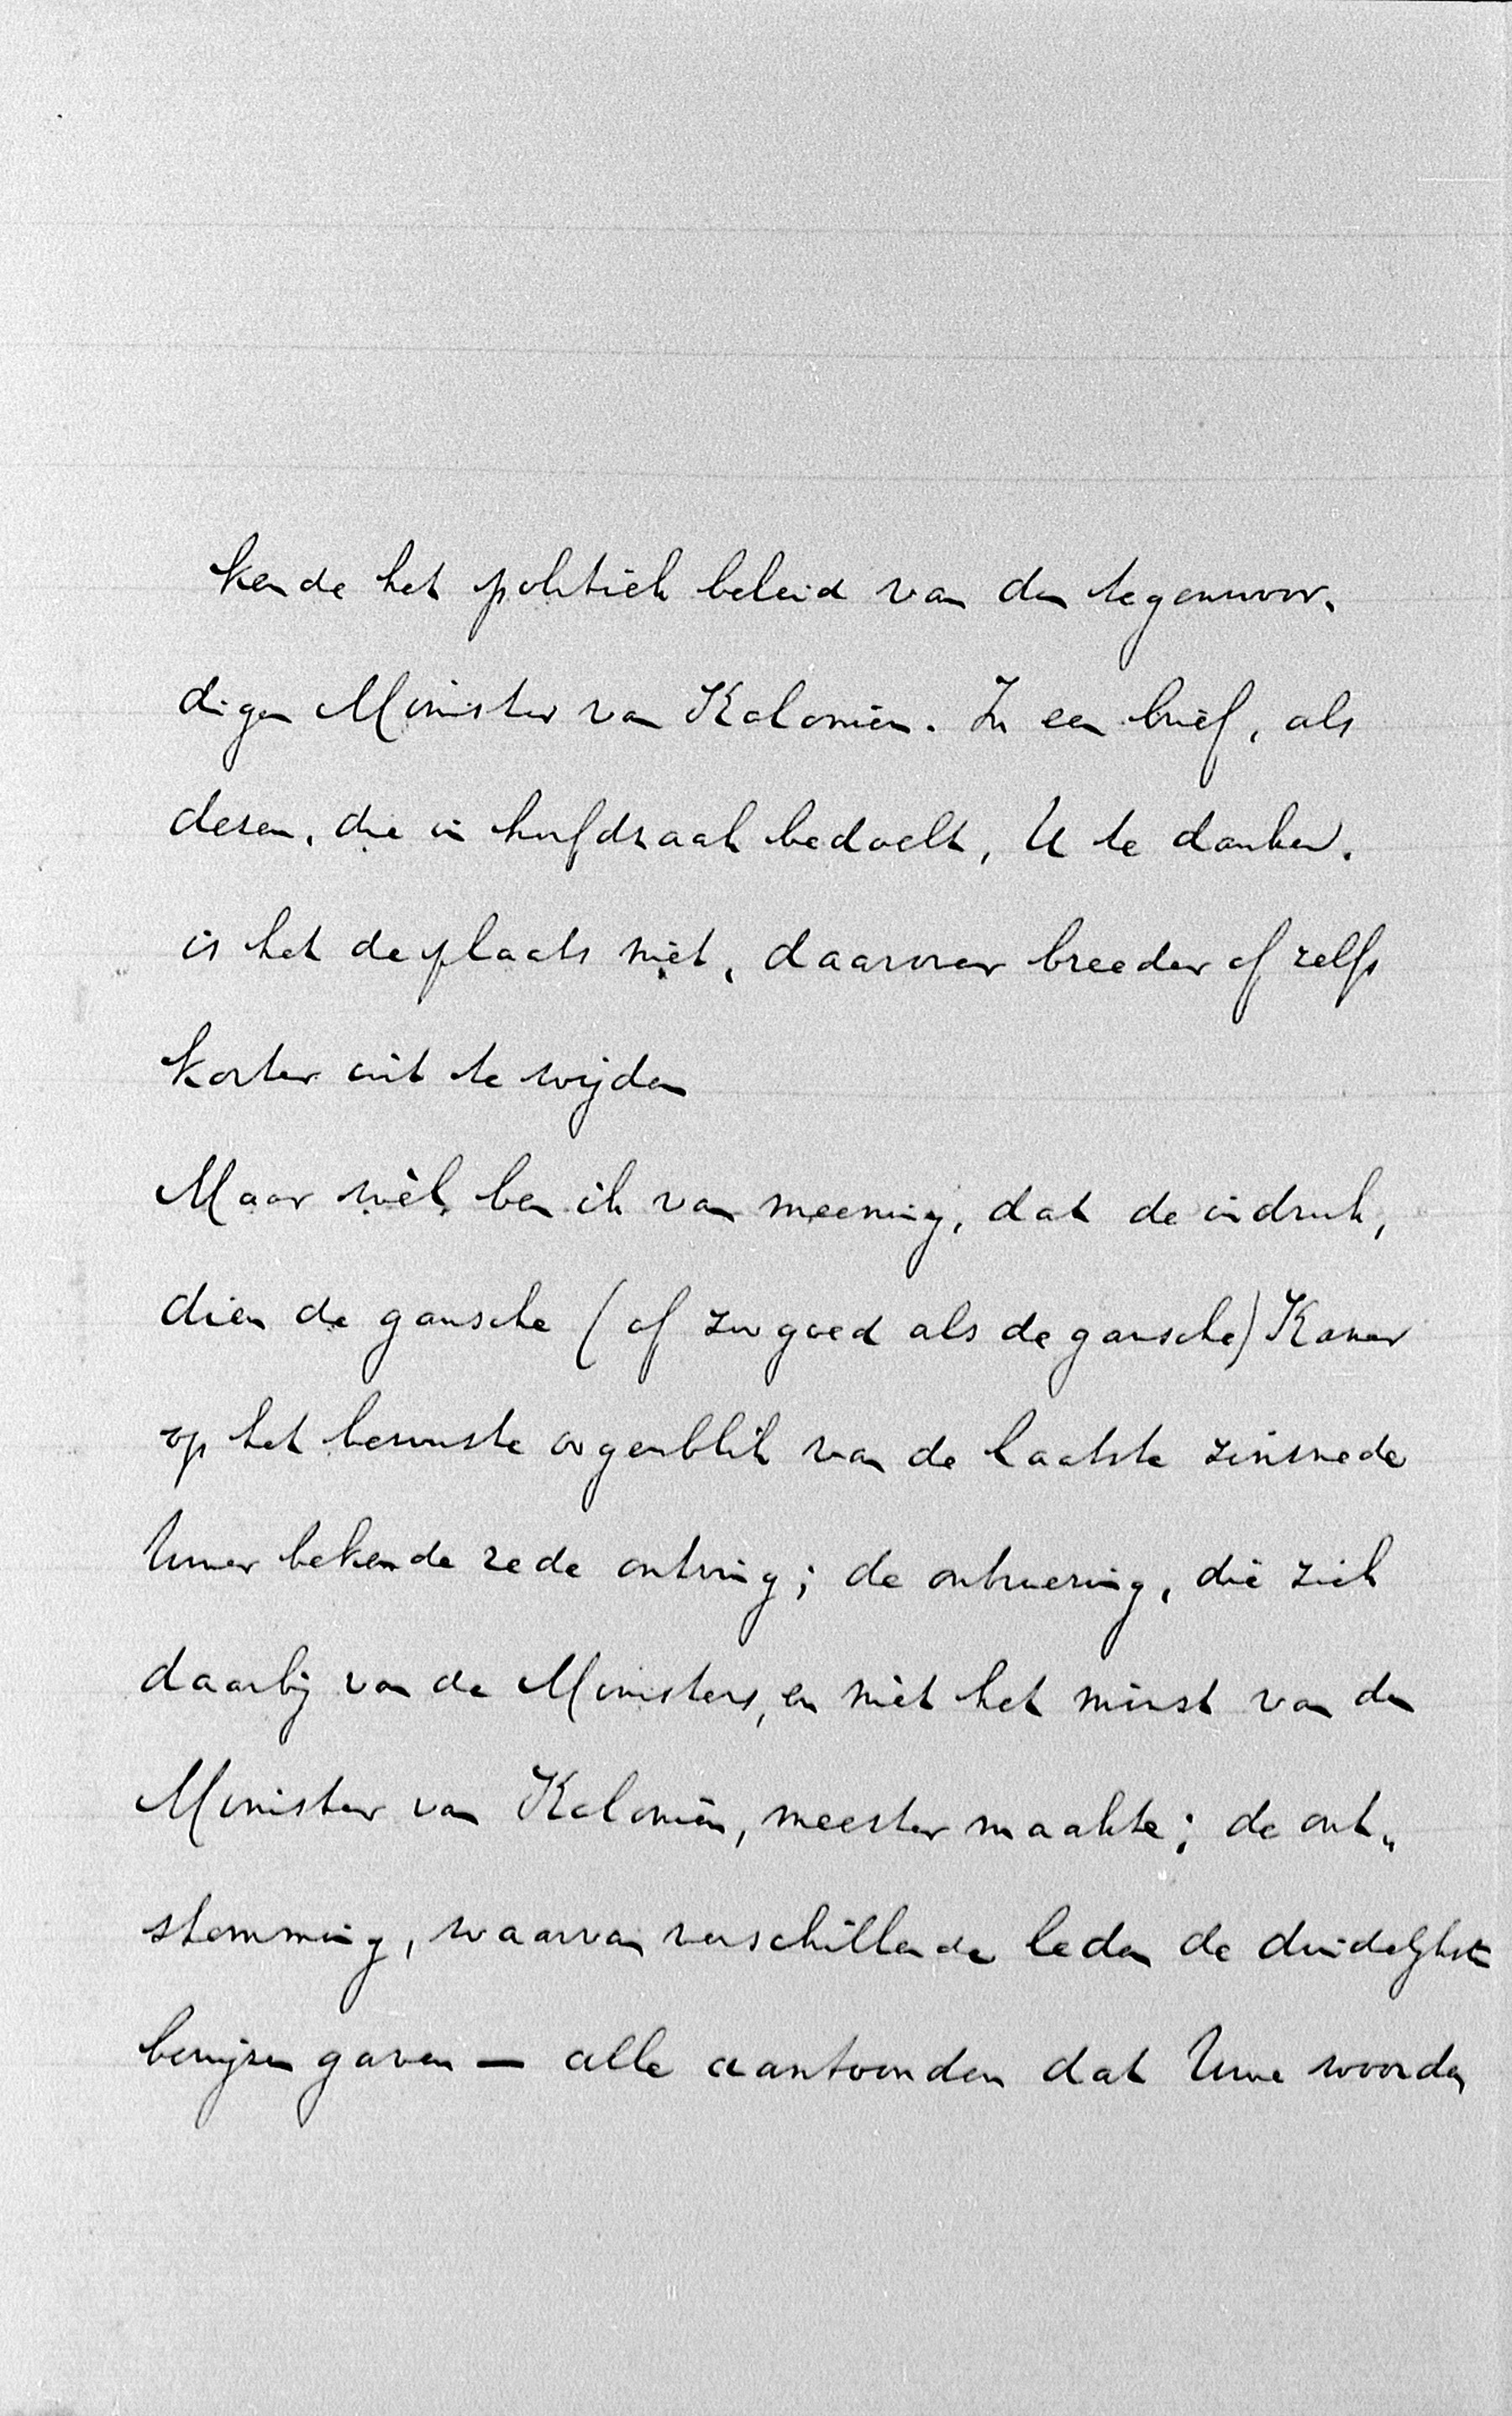 kende het politiek beleid van den tegenwoor-
digen Minister van Koloniën. In een brief, als
dezen, die in hoofdzaak bedoelt, U te danken,
is het de plaats niet, daarover breeder of zelfs
korter uit te wijden
Maar wèl ben ik van meening, dat de indruk,
dien de gansche (of zoo goed als de gansche) Kamer
op het bewuste oogenblik van de laatste zinsnede
Uwer bekende rede ontving; de ontroering, die zich
daarbij van de Ministers, en niet het minst van den
Minister van Koloniën, meester maakte; de ont-
stemming, waarvan verschillende leden de duidelijkste
bewijzen gaven — alle aantoonden dat Uwe woorden